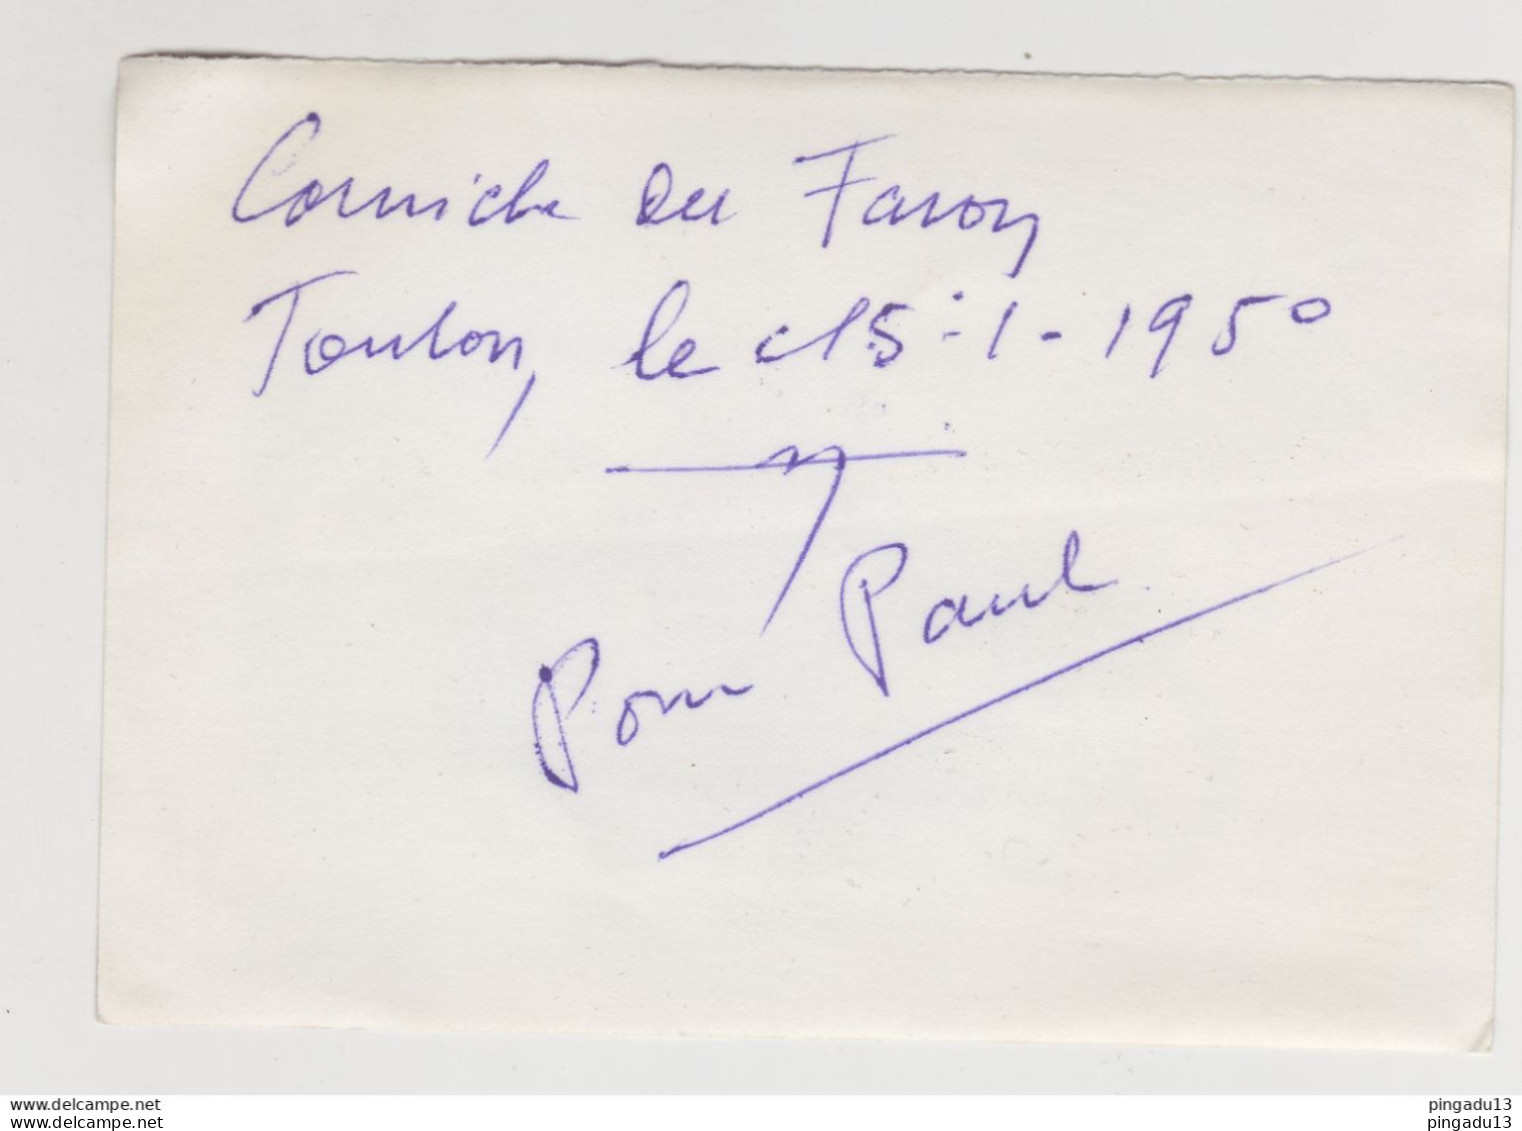 Corniche du Faron
Toulon, le 15-1-1950
Pour Paul
www.delcampe.net
www.delcampe.net
pingadu13
pingadu13